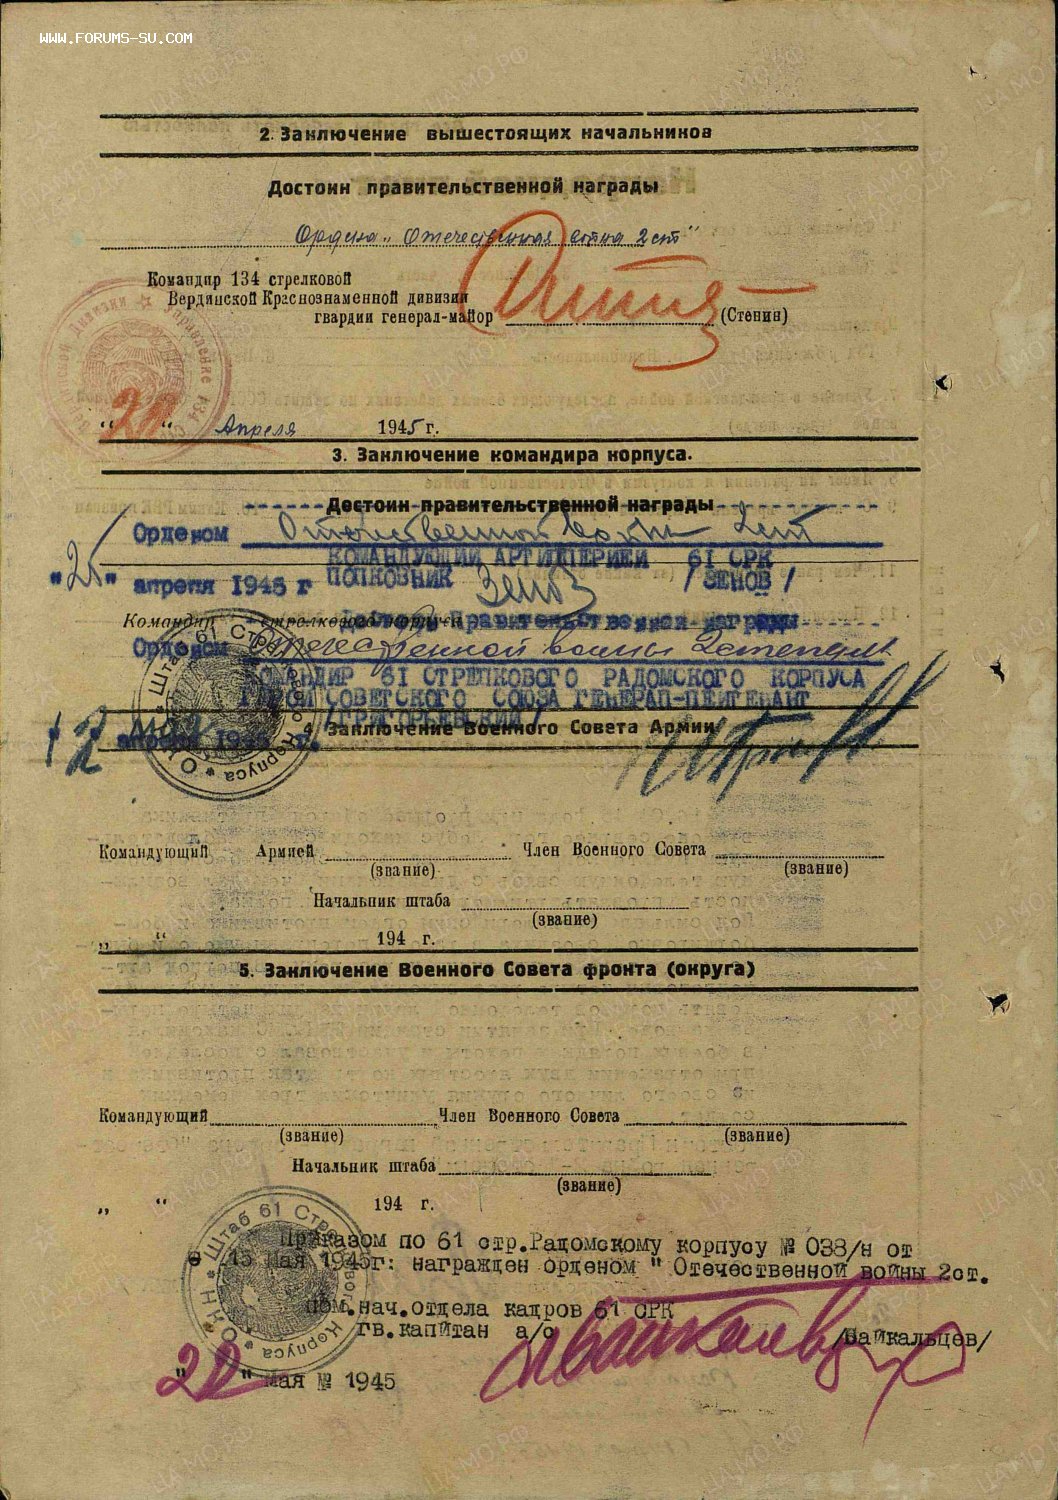 WWW.FORUMS-SU.COM
2. Заключение вышестоящих начальников
Достоин правительственной награды
Ордена „ Отечественная война 2 ст"
Командир 134 стрелковой
Вердинской Краснознаменной дивизии
гвардии генерал-майор (Стенин)
" 21 " Апреля 1945 г.
3. Заключение командира корпуса.
Достоин правительственной награды
Орденом Отечественной войны 2 ст
КОМАНДУЮЩИЙ АРТИЛЛЕРИЕЙ 61 СРК
"25" апреля 1945 г ПОЛКОВНИК Зенов / ЗЕНОВ /
Командир стрелкового корпуса
Достоин Правительственной награды
Орденом Отечественной войны 2 степени
КОМАНДИР 61 СТРЕЛКОВОГО РАДОМСКОГО КОРПУСА
ГЕРОЙ СОВЕТСКОГО СОЮЗА ГЕНЕРАЛ-ЛЕЙТЕНАНТ
/ГРИГОРЬЕВСКИЙ/
4 Заключение Военного Совета Армии
мая
апреля 1945 г.
Штаб 61 Стрелкового Корпуса
Командующий Армией Член Военного Совета
(звание) (звание)
Начальник штаба
(звание)
„ “ 194 г.
5. Заключение Военного Совета фронта (округа)
Командующий Член Военного Совета
(звание) (звание)
Начальник штаба
(звание)
„ “ 194 г.
Штаб 61 Стрелкового Корпуса
Приказом по 61 стр.Радомскому корпусу № 038/н от
15 мая 1945г: награжден орденом " Отечественной войны 2ст.
пом.нач.отдела кадров 61 СРК
гв.капитан а/с /Байкальцев/
" 22 " мая № 1945